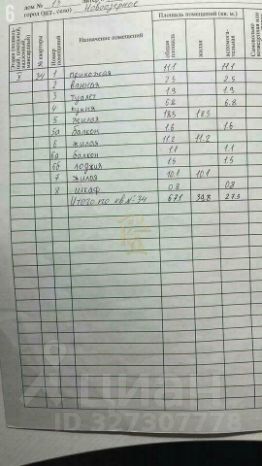 6
дом № 13
город (пгт, село) Новогорное
Площадь помещений (кв. м.)
№ квартиры Номер помещения Назначение помещений общая площадь жилая вспомогательная
34 1 прихожая 11.1 11.1
2 ванная 2.5 2.5
3 туалет 1.3 1.3
4 кухня 6.8 6.8
5 жилая 18.5 18.5
5а балкон 1.6 1.6
6 жилая 11.2 11.2
6а балкон 1.1 1.1
6б лоджия 1.5 1.5
7 жилая 10.1 10.1
8 шкаф 0.8 0.8
Итого по кв № 34 67.1 39.8 27.3
циан
ID 327307778